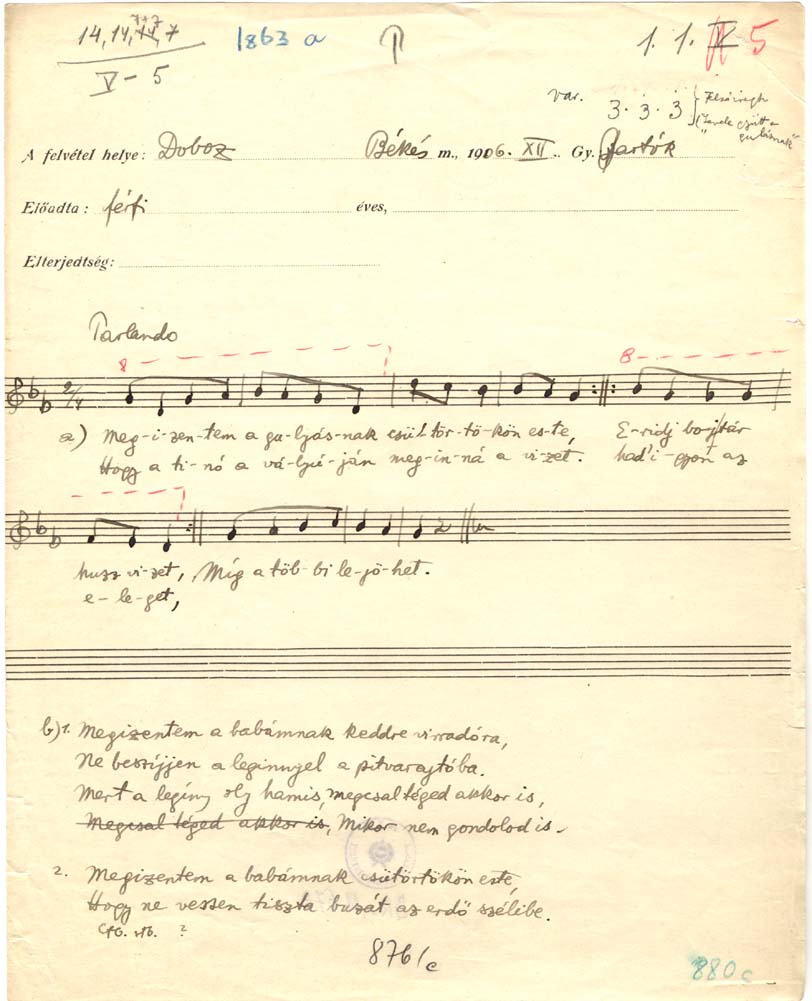 14, 14, 7+7, 7
V - 5
1863 a
1. 1. 5
var. 3. 3. 3
A felvétel helye: Doboz Békés m., 1906. XII. Gy. Bartók
Előadta: férfi éves,
Elterjedtség:
Parlando
8
2/4
8
a) Meg-i-zen-tem a gu-lyás-nak csü-tör-tö-kön es-te, E-ridj bojtár
Hogy a ti-nó a vá-lyú-ján meg-in-ná a vi-zet. had' i-gyon az
huzz vi-zet, Míg a töb-bi le-jö-het.
e-le-get,
b) 1. Megizentem a babámnak keddre virradóra,
Ne beszíjjen a leginnyel a pitvarajtóba.
Mert a legíny oly hamis, megcsal téged akkor is,
Megcsal téged akkor is, Mikor nem gondolod is.
2. Megizentem a babámnak csütörtökön este,
Hogy ne vessen tiszta buzát az erdő szélibe.
stb. stb. ?
876/c
880c